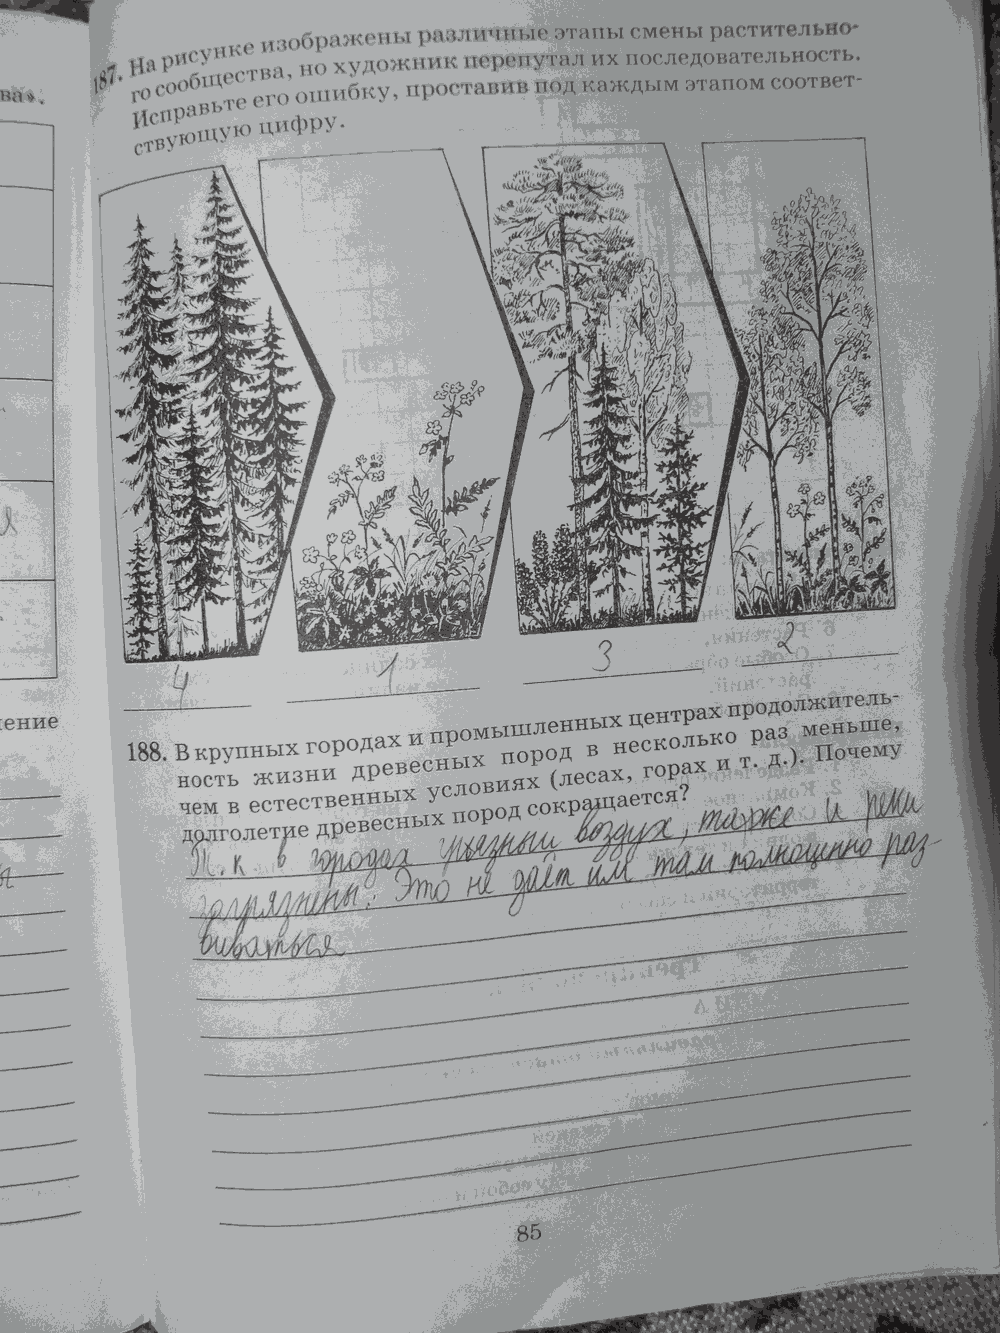 ва».
187. На рисунке изображены различные этапы смены растительно-
го сообщества, но художник перепутал их последовательность.
Исправьте его ошибку, проставив под каждым этапом соответ-
ствующую цифру.
4 1 3 2
188. В крупных городах и промышленных центрах продолжитель-
ность жизни древесных пород в несколько раз меньше,
чем в естественных условиях (лесах, горах и т. д.). Почему
долголетие древесных пород сокращается?
Т.к в городах грязный воздух, также и реки
загрязнены. Это не даёт им там полноценно раз-
виваться
85